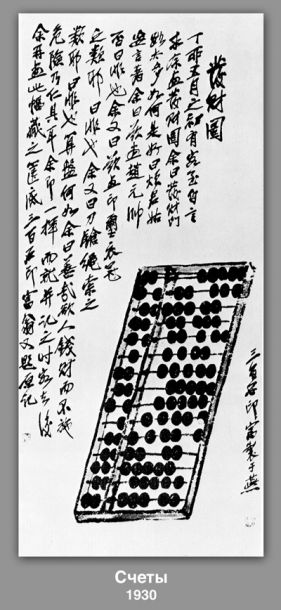 發財圖
丁卯五月之初有客至自言
求余畫發財圖余曰發財門
路太多如何是好曰煩君姑
妄言者余曰欲畫趙元帥
否曰非也余又曰欲畫印璽衣冠
之類耶曰非也余又曰刀鎗繩索之
類耶曰非也算盤何如余曰善哉欲人錢財而不施
危險乃仁具耳余即一揮而就并記之時客去後
余再畫此幅藏之篋底三百石印富翁又題原記
三百石印富翁于燕
Счеты
1930